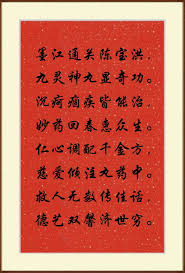 墨江通关陈宝洪，
九灵神九显奇功。
沉疴痼疾皆能治，
妙药回春惠众生。
仁心调配千金方，
慈爱倾注九药中。
救人无数传佳话，
德艺双馨济世穷。